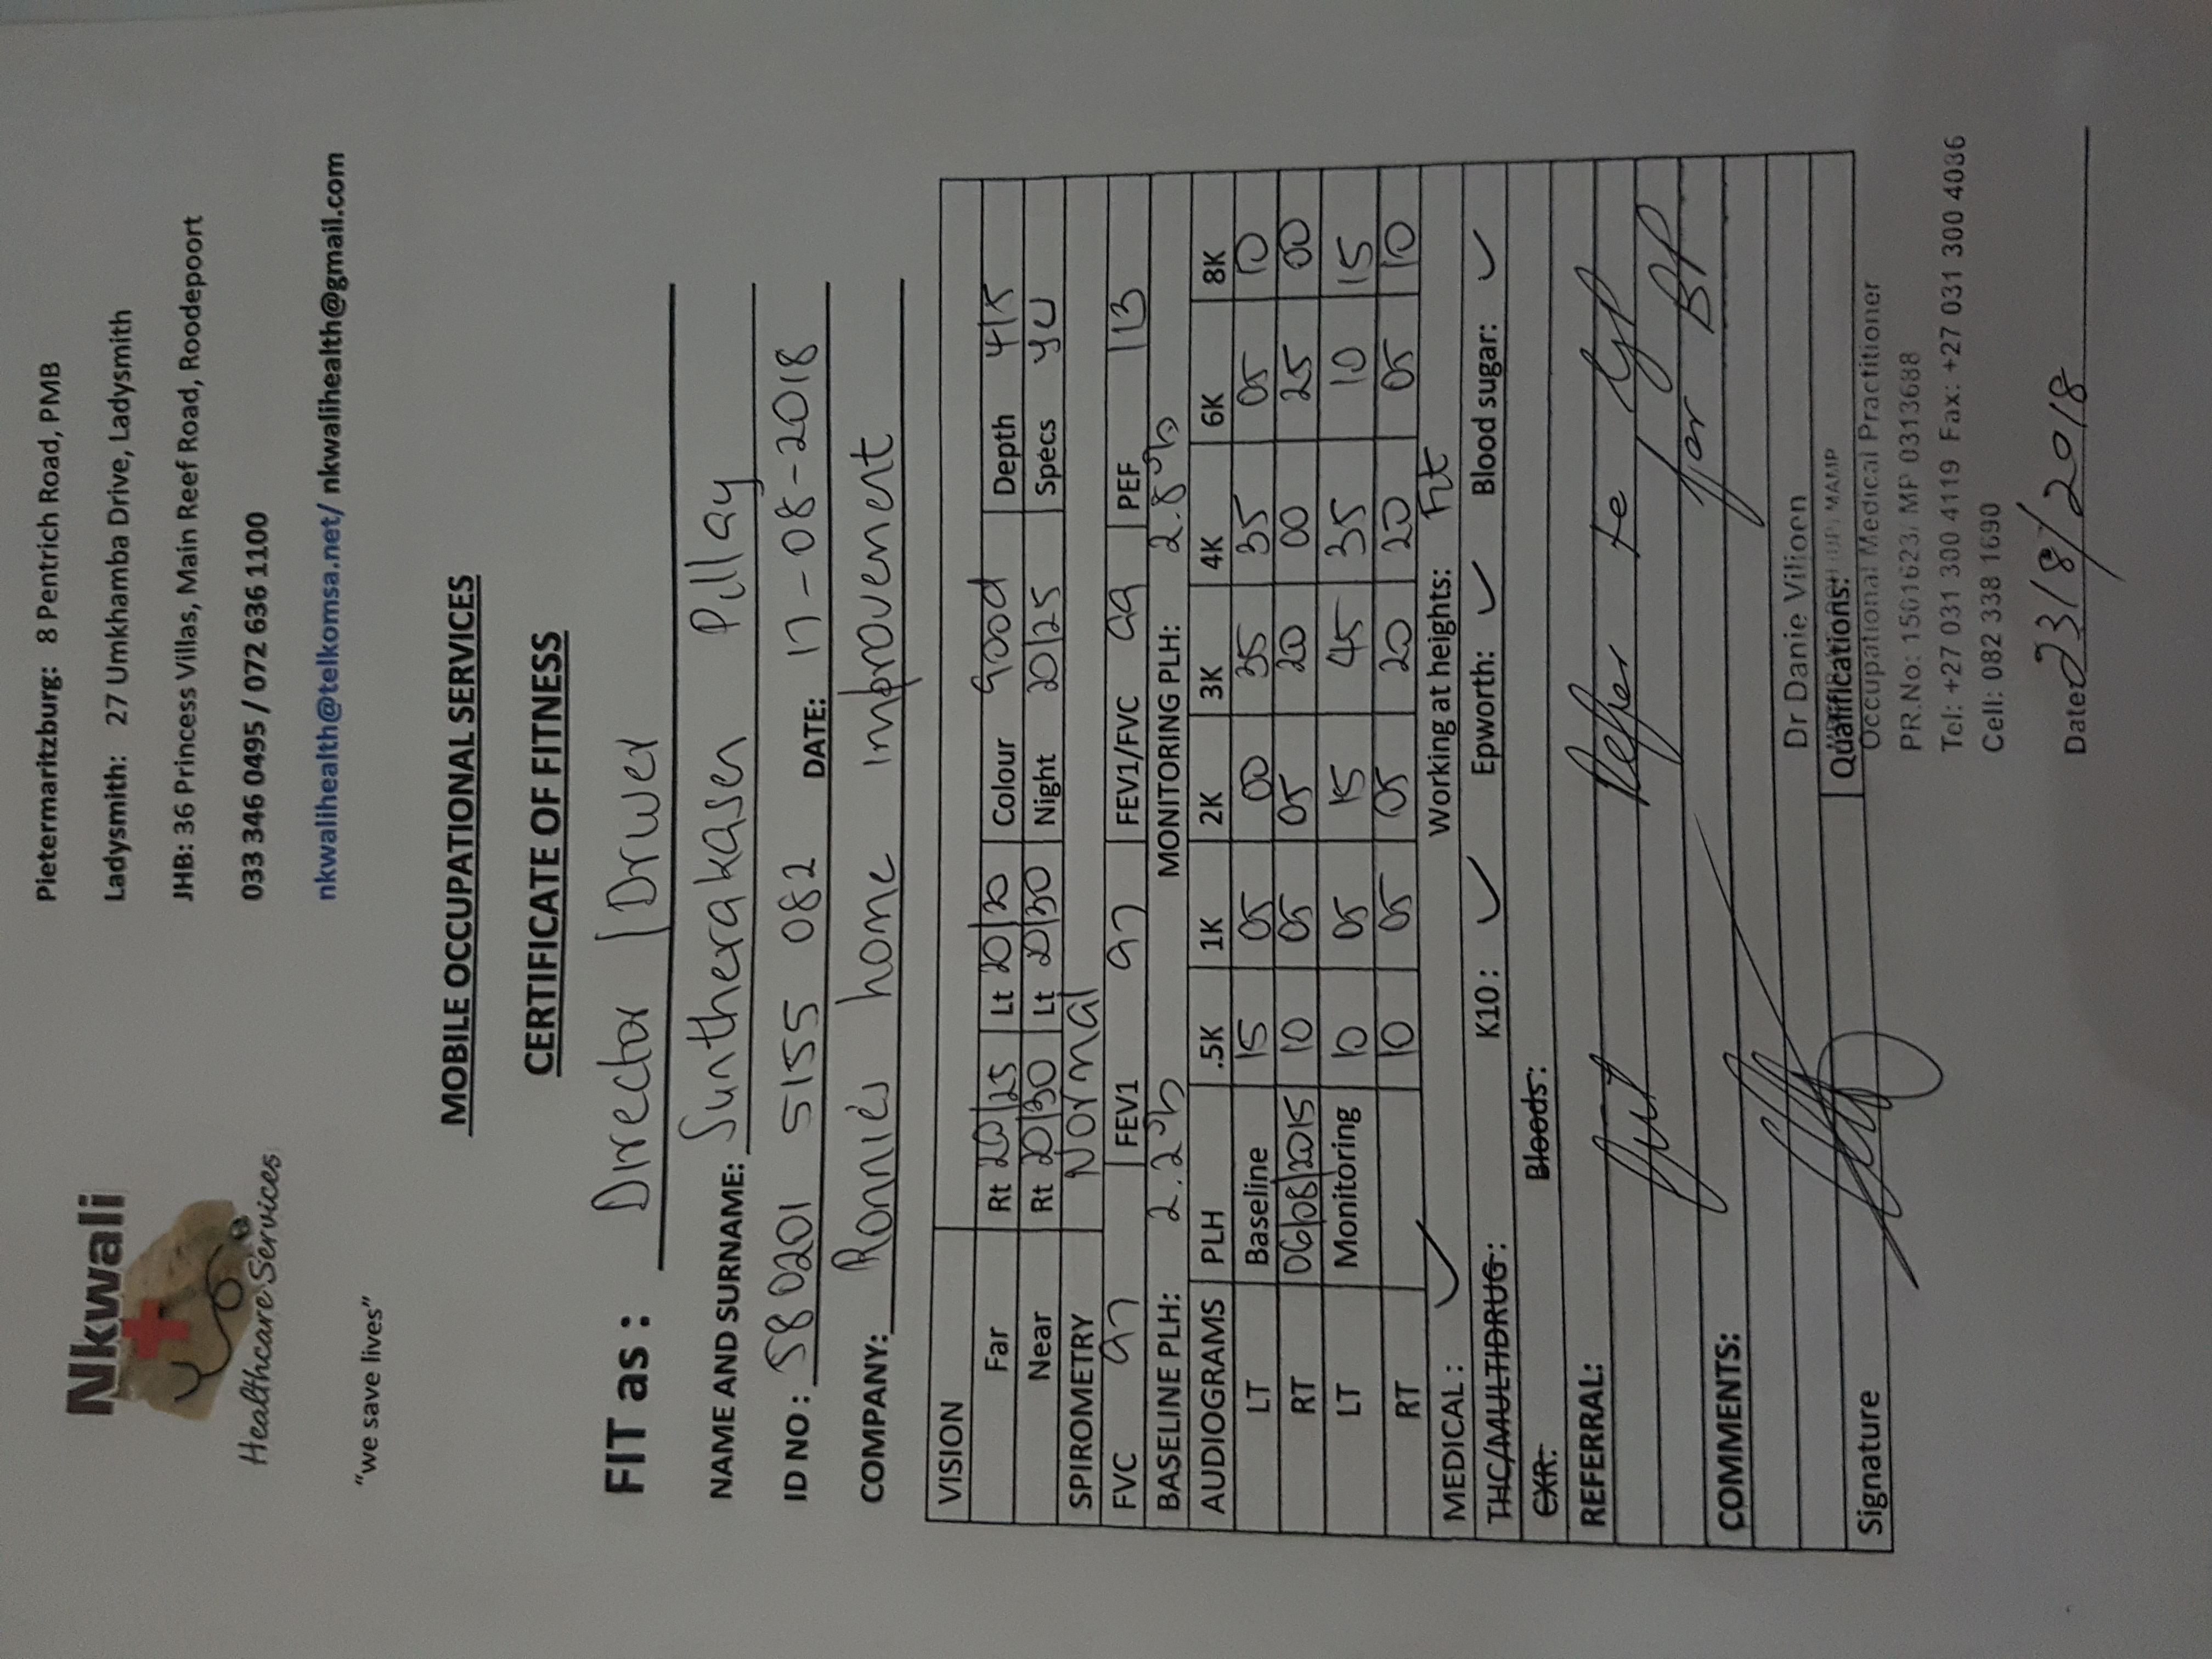 Nkwali
Healthcare Services
"we save lives"
Pietermaritzburg: 8 Pentrich Road, PMB
Ladysmith: 27 Umkhamba Drive, Ladysmith
JHB: 36 Princess Villas, Main Reef Road, Roodepoort
033 346 0495 / 072 636 1100
nkwalihealth@telkomsa.net/ nkwalihealth@gmail.com
MOBILE OCCUPATIONAL SERVICES
CERTIFICATE OF FITNESS
FIT as : Director / Driver
NAME AND SURNAME: Suntherakasen Pillay
ID NO: 580201 5155 082 DATE: 17-08-2018
COMPANY: Ronnies home improvement
VISION
Far Rt 20/25 Lt 20/20 Colour Good Depth 4/5
Near Rt 20/30 Lt 20/30 Night 20/25 Specs
SPIROMETRY Normal
FVC 97 FEV1 97 FEV1/FVC 99 PEF 113
BASELINE PLH: 2.2% MONITORING PLH: 2.8%
AUDIOGRAMS PLH .5K 1K 2K 3K 4K 6K 8K
LT Baseline 15 05 00 35 35 05 10
RT 06/08/2015 10 05 05 20 00 25 00
LT Monitoring 10 05 15 45 35 10 15
RT 10 05 05 20 20 05 10
MEDICAL : ✓ Working at heights: Fit
THC/MULTIDRUG: K10 : ✓ Epworth: ✓ Blood sugar: ✓
CXR: Bloods:
REFERRAL:
Refer to GP
for BP
COMMENTS:
Dr Danie Viljoen
Signature Qualifications:
Occupational Medical Practitioner
PR.No: 1501623/ MP 0313688
Tel: +27 031 300 4119 Fax: +27 031 300 4036
Cell: 082 338 1690
Date 23/8/2018